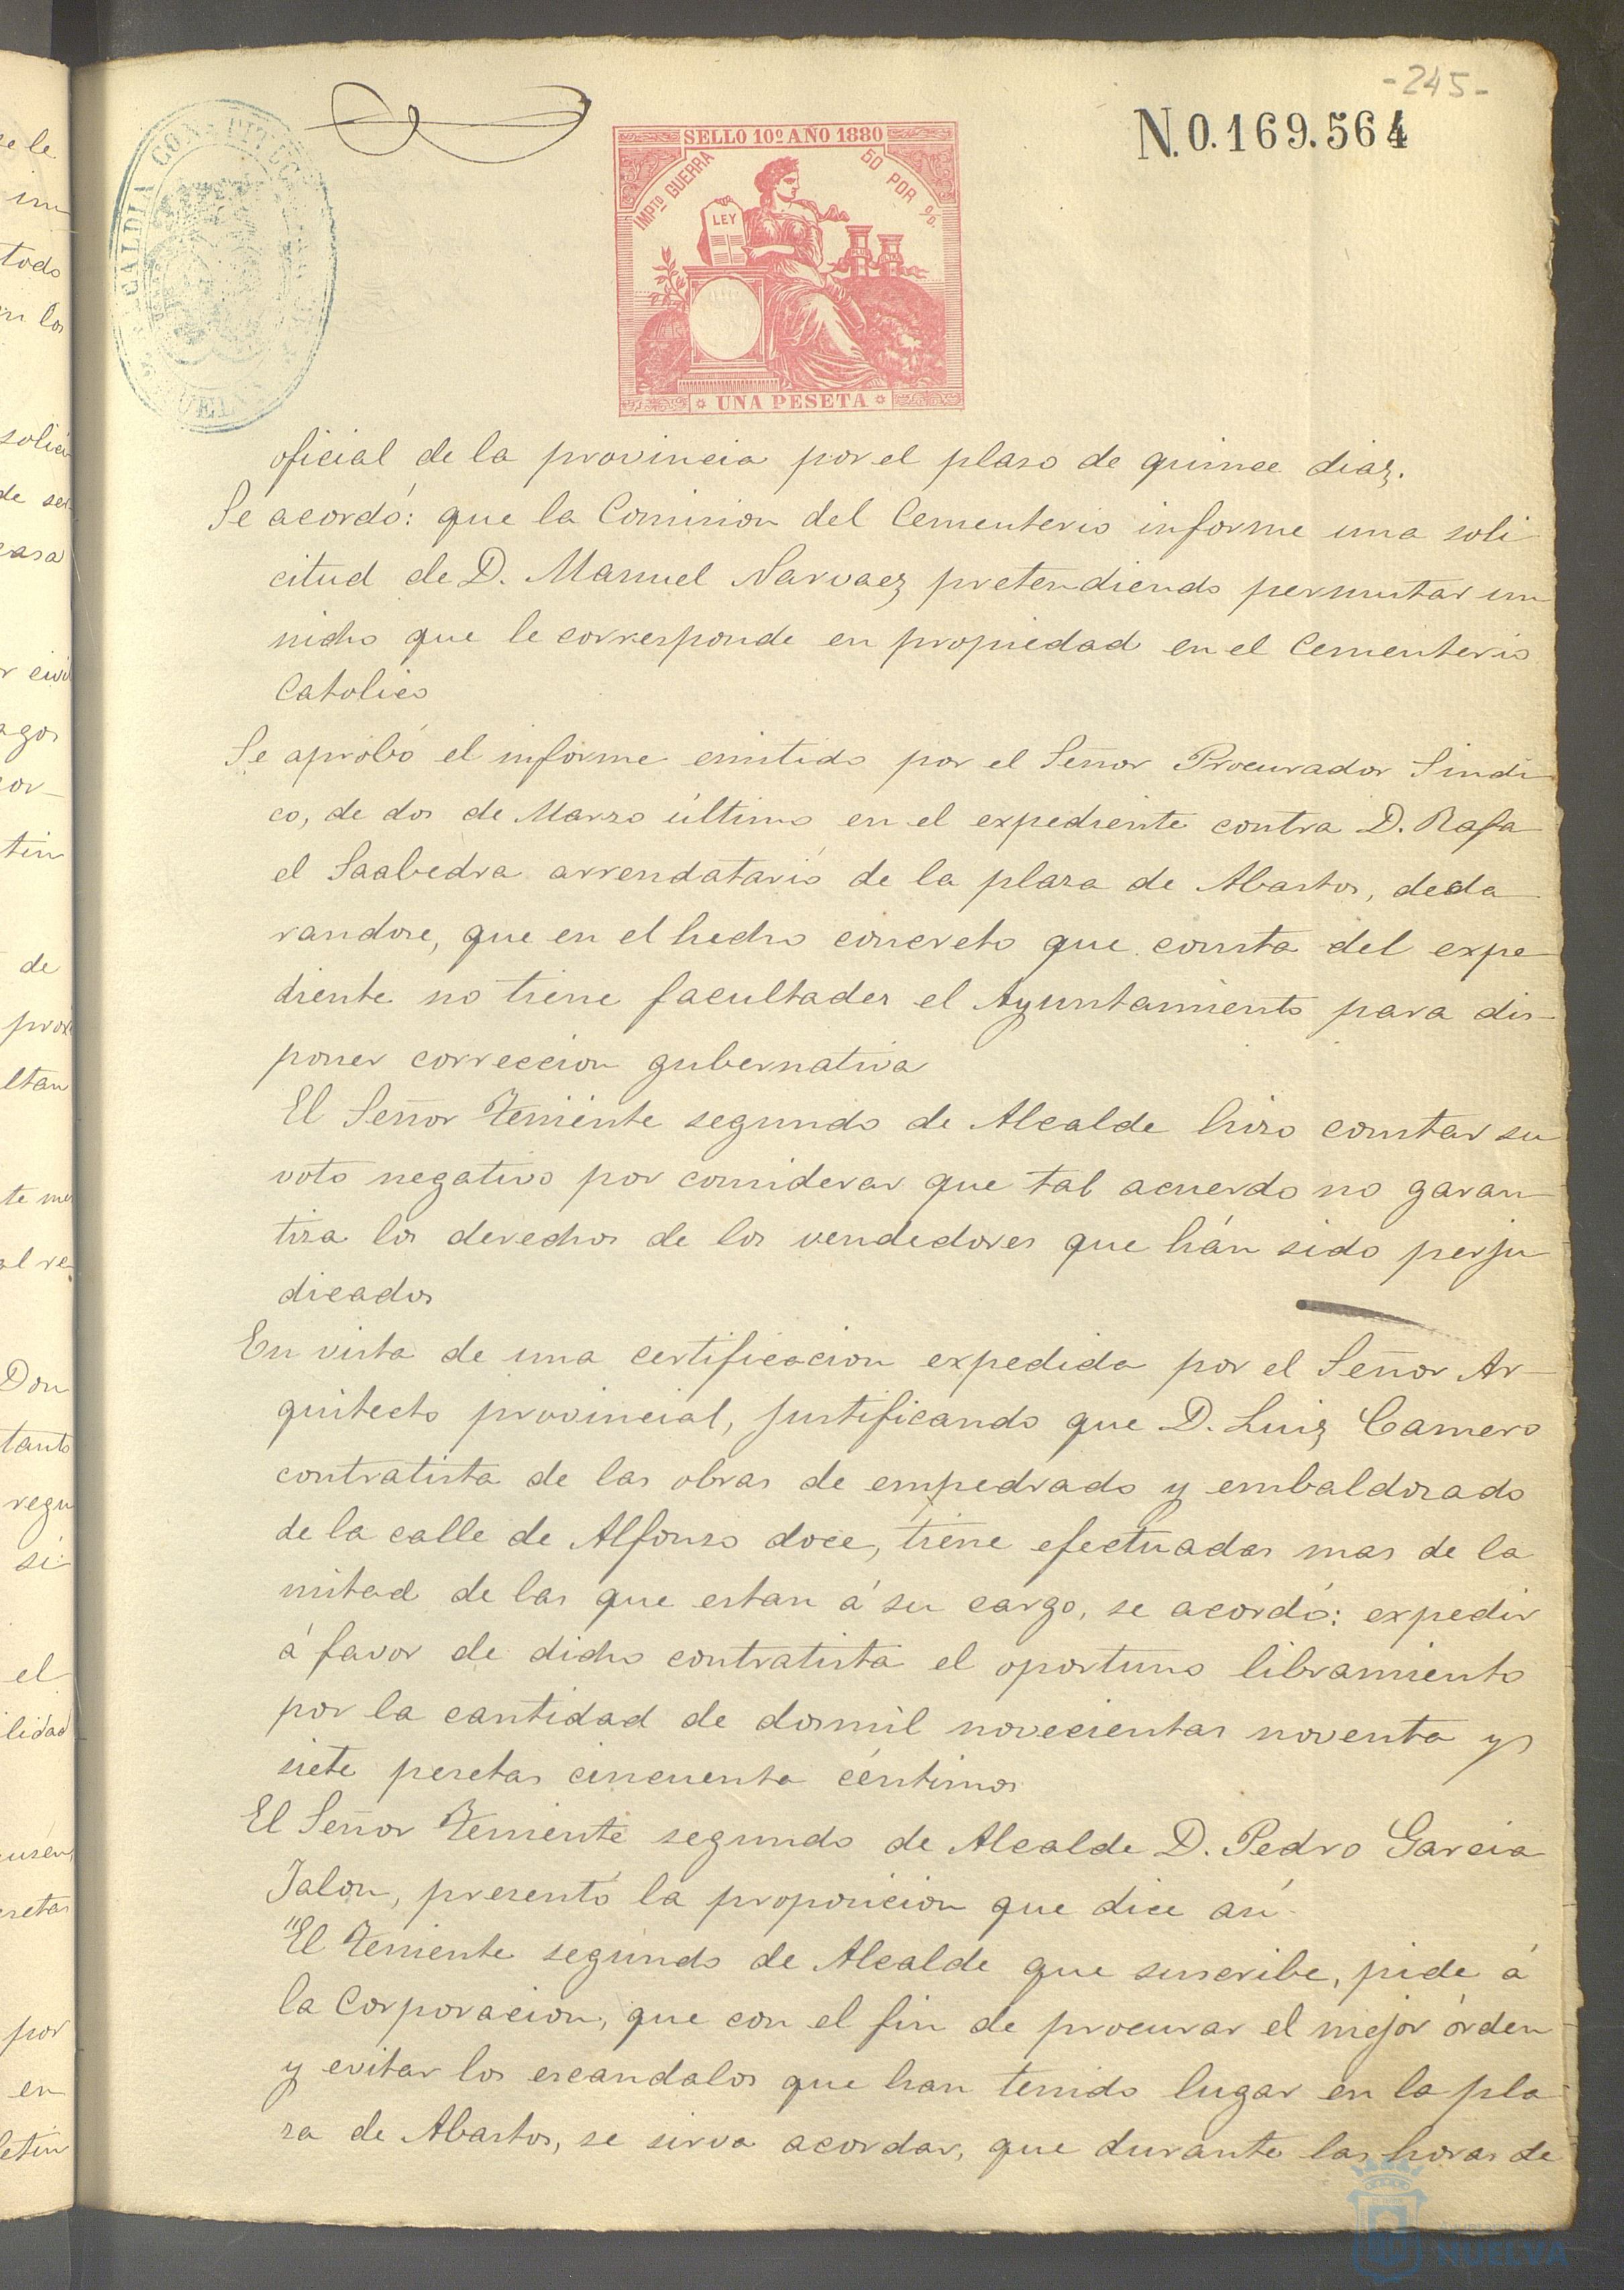 -245-
N.0.169.564
ALCALDIA CONSTITUC
HUELVA
SELLO 10º AÑO 1880
IMPTO GUERRA 50 POR %
LEY
UNA PESETA
oficial de la provincia por el plaso de quince diaz.
Se acordó: que la Comision del Cementerio informe una soli
citud de D. Manuel Narvaez pretendiendo permutar un
nicho que le corresponde en propiedad en el Cementerio
Catolico
Se aprobó el informe emitido por el Señor Procurador Sindi
co, de dos de Marzo último en el expediente contra D. Rafa
el Saabedra arrendatario de la plaza de Abastos, decla
randose, que en el hecho concreto que consta del expe
diente no tiene facultades el Ayuntamiento para dis-
poner correccion gubernativa
El Señor Teniente segundo de Alcalde hizo constar su
voto negativo por considerar que tal acuerdo no garan
tiza los derechos de los vendedores que hán sido perju
dicados
En vista de una certificacion expedida por el Señor Ar-
quitecto provincial, justificando que D. Luiz Camero
contratista de las obras de empedrado y embaldosado
de la calle de Alfonso doce, tiene efectuadas mas de la
mitad de las que estan á su cargo, se acordó: expedir
á favor de dicho contratista el oportuno libramiento
por la cantidad de dosmil novecientas noventa y
siete pesetas cincuenta céntimos
El Señor Teniente segundo de Alcalde D. Pedro Garcia
Jalon, presentó la proposicion que dice así
"El Teniente segundo de Alcalde que suscribe, pide á
la Corporacion, que con el fin de procurar el mejor órden
y evitar los escandalos que han tenido lugar en la pla
za de Abastos, se sirva acordar, que durante las horas de
HUELVA